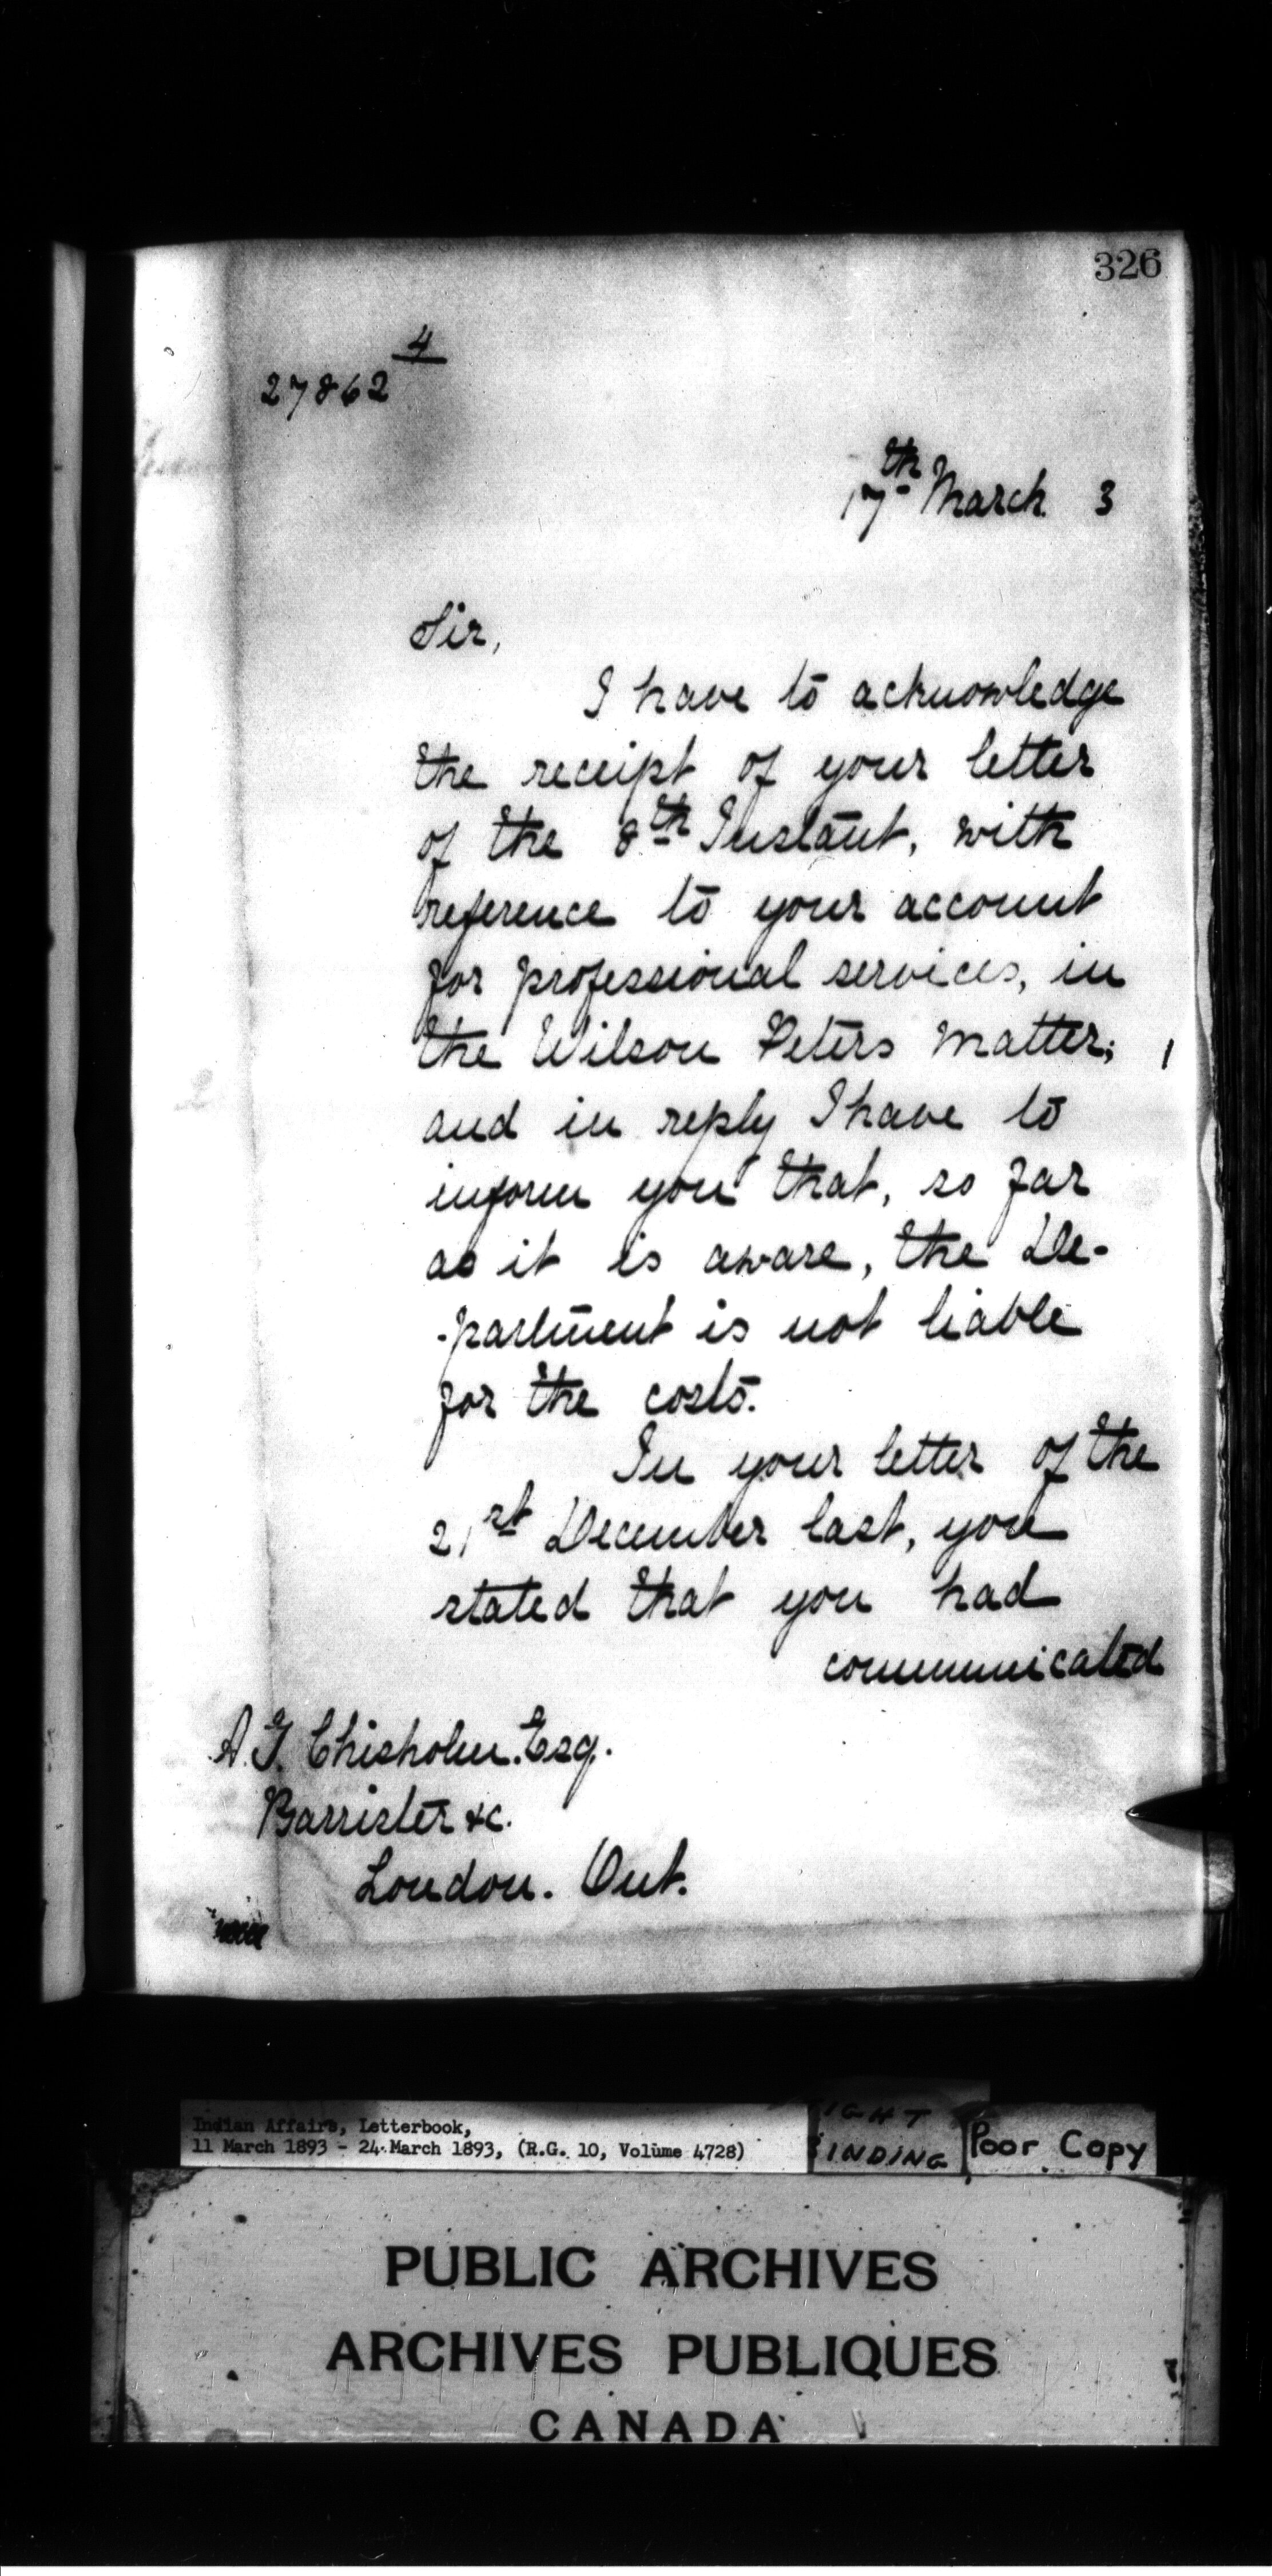 326
4
27862
17th March 3
Sir,
I have to acknowledge
the receipt of your letter
of the 8th Instant, with
reference to your account
for professional services, in
the Wilson Peters matter;
and in reply I have to
inform you that, so far
as it is aware, the De-
-partment is not liable
for the costs.
In your letter of the
21st December last, you
stated that you had
communicated
A. G. Chisholm. Esq.
Barrister &c.
London. Ont.
Indian Affairs, Letterbook,
11 March 1893 - 24 March 1893, (R.G. 10, Volume 4728)
Poor Copy
PUBLIC ARCHIVES
ARCHIVES PUBLIQUES
CANADA